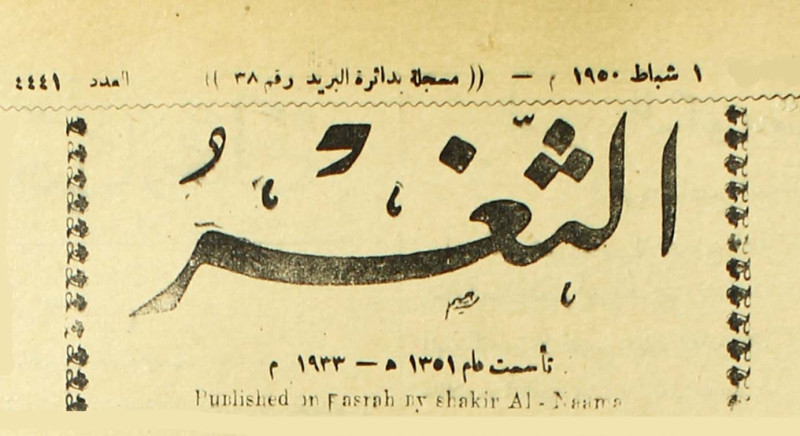 ١ شباط ١٩٥٠ م — (( مسجلة بدائرة البريد رقم ٣٨ )) العدد ٤٤٤١
الثغر
تأسست عام ١٣٥١ ه — ١٩٣٣ م
Published in Basrah by shakir Al - Naama